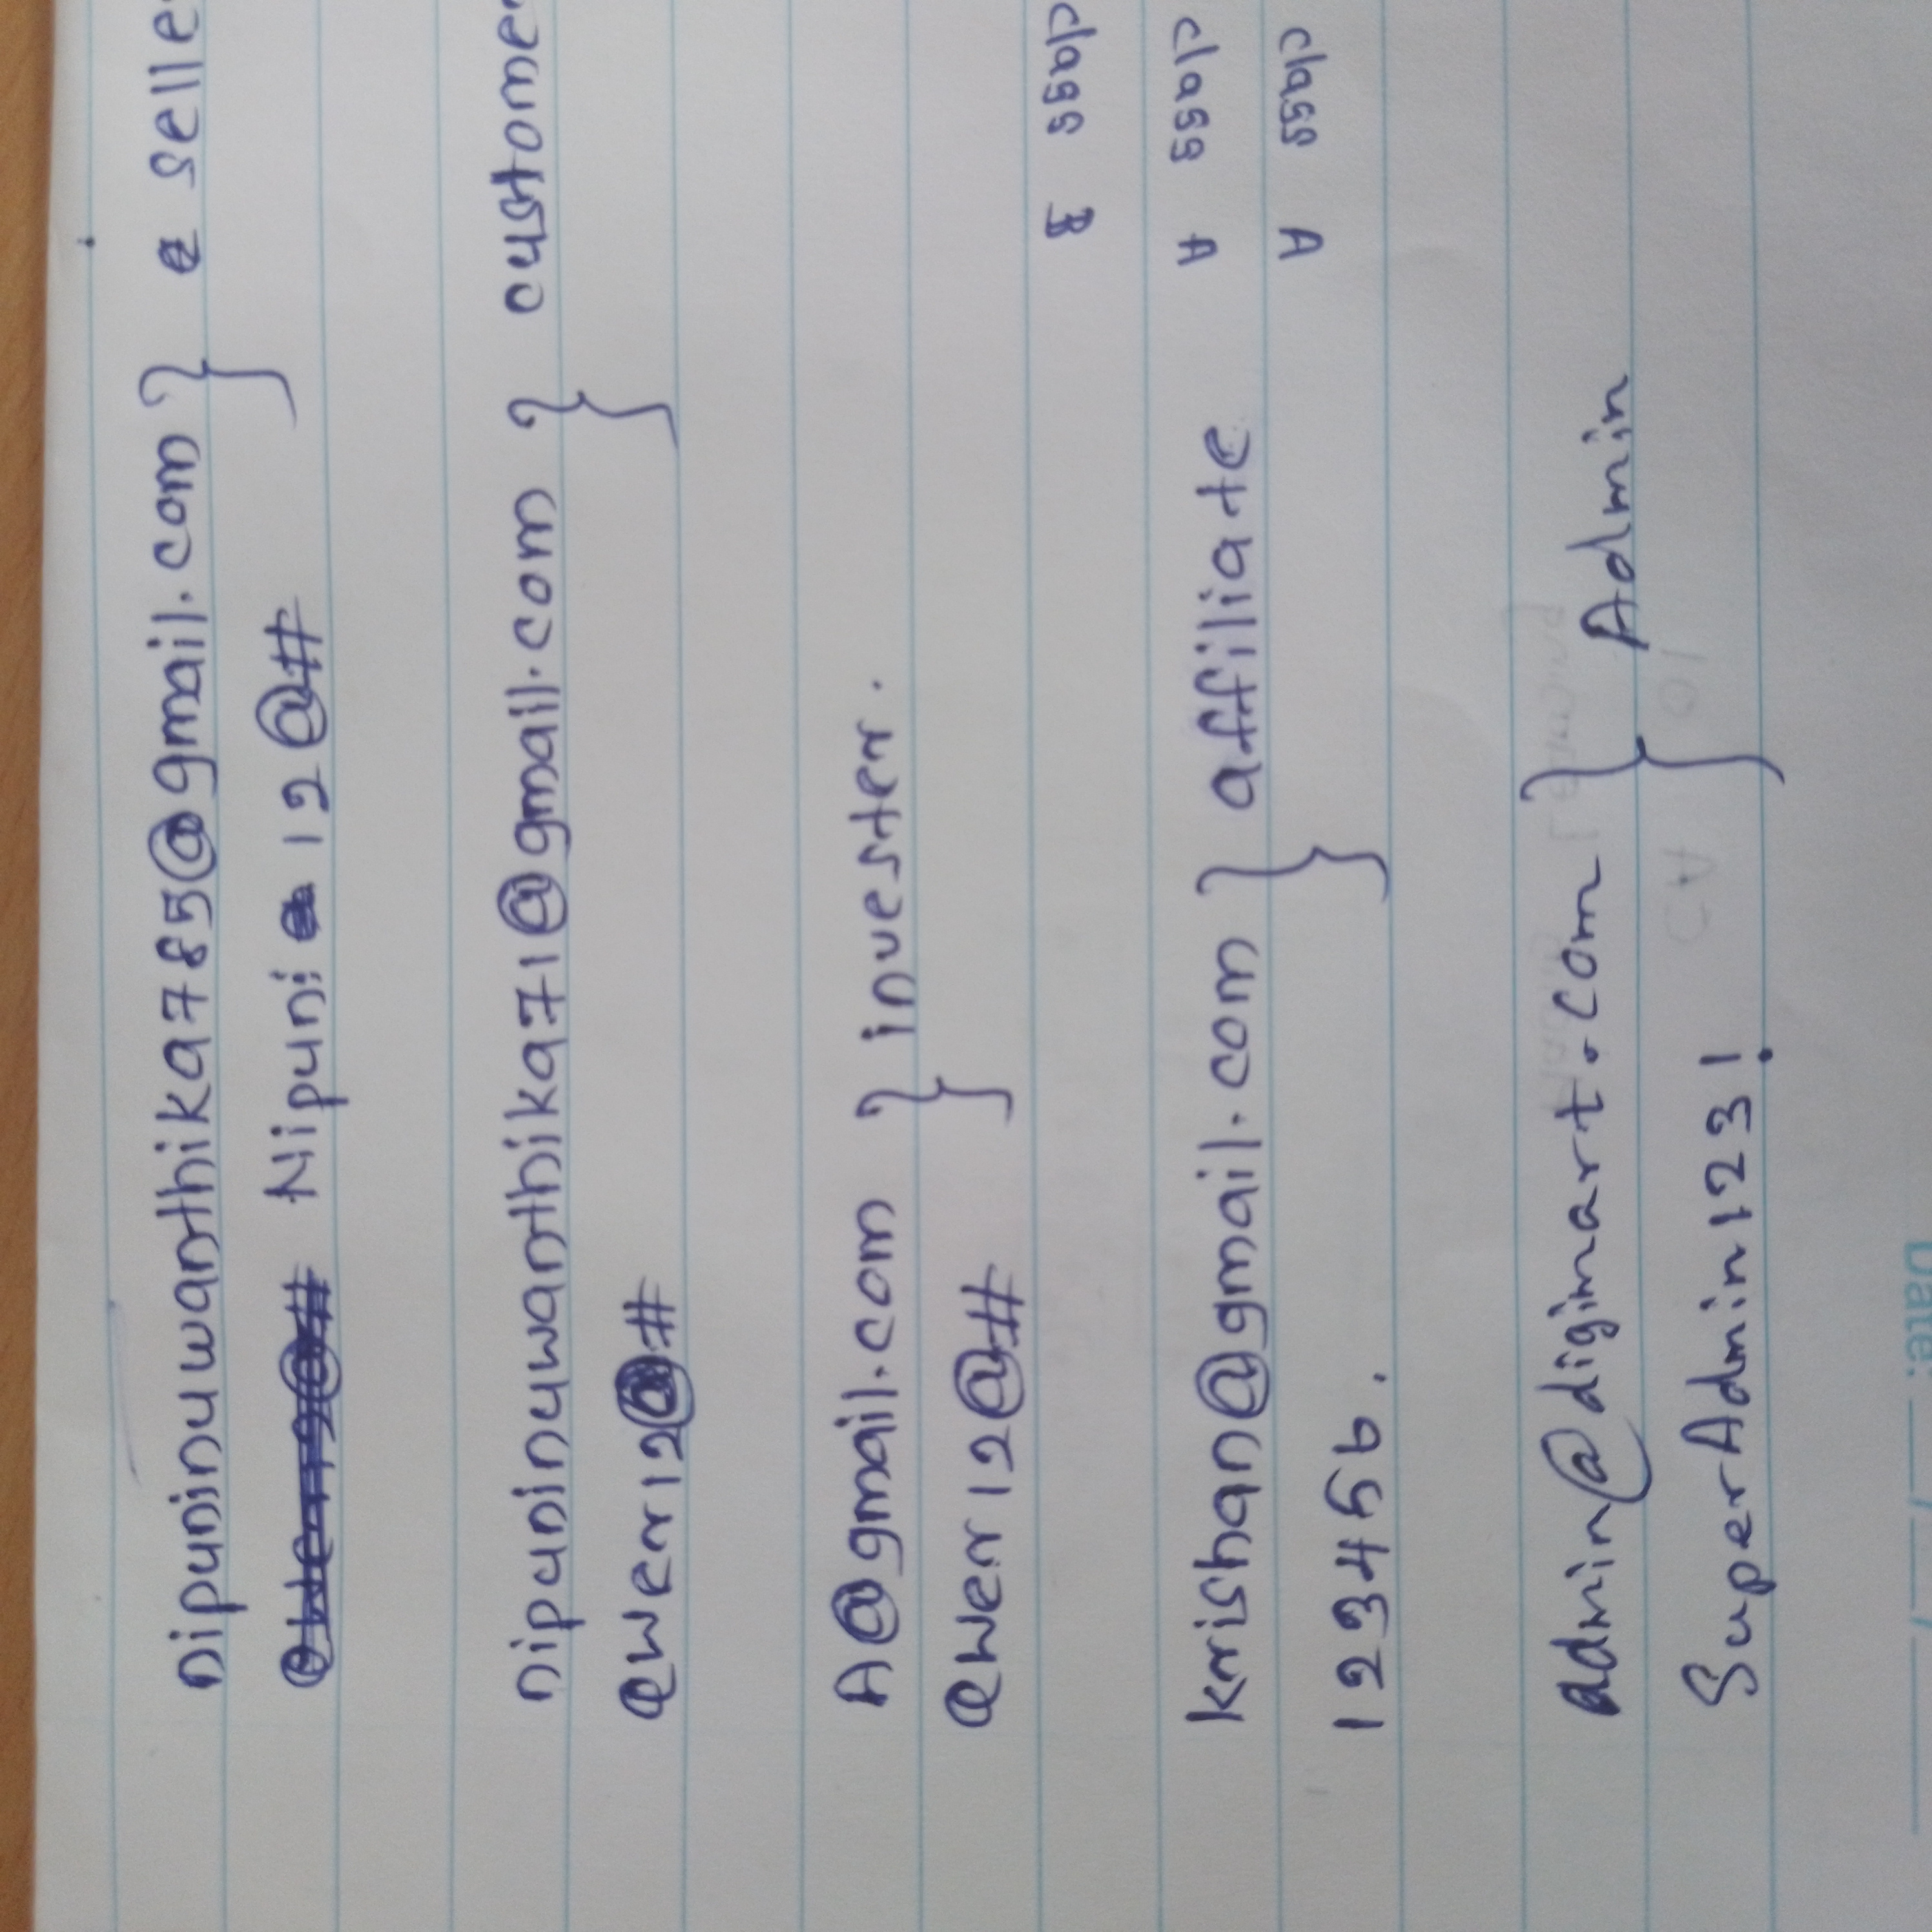 nipuninuwanthika785@gmail.com } selle
Nipuni 12@#
nipuninuwanthika71@gmail.com } custome
Qwer12@#
A@gmail.com } invester.
Qwer12@#
class B
krishan@gmail.com } affiliate
class A
123456.
class A
admin@digimart.com } Admin
SuperAdmin123!
Date: